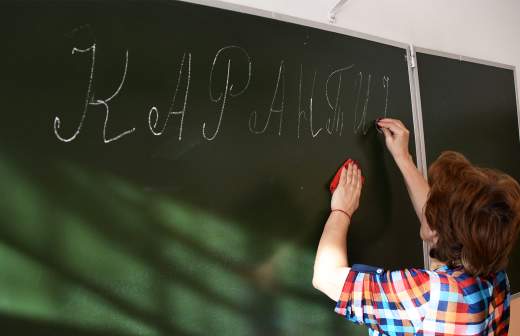 КАРАНТИ